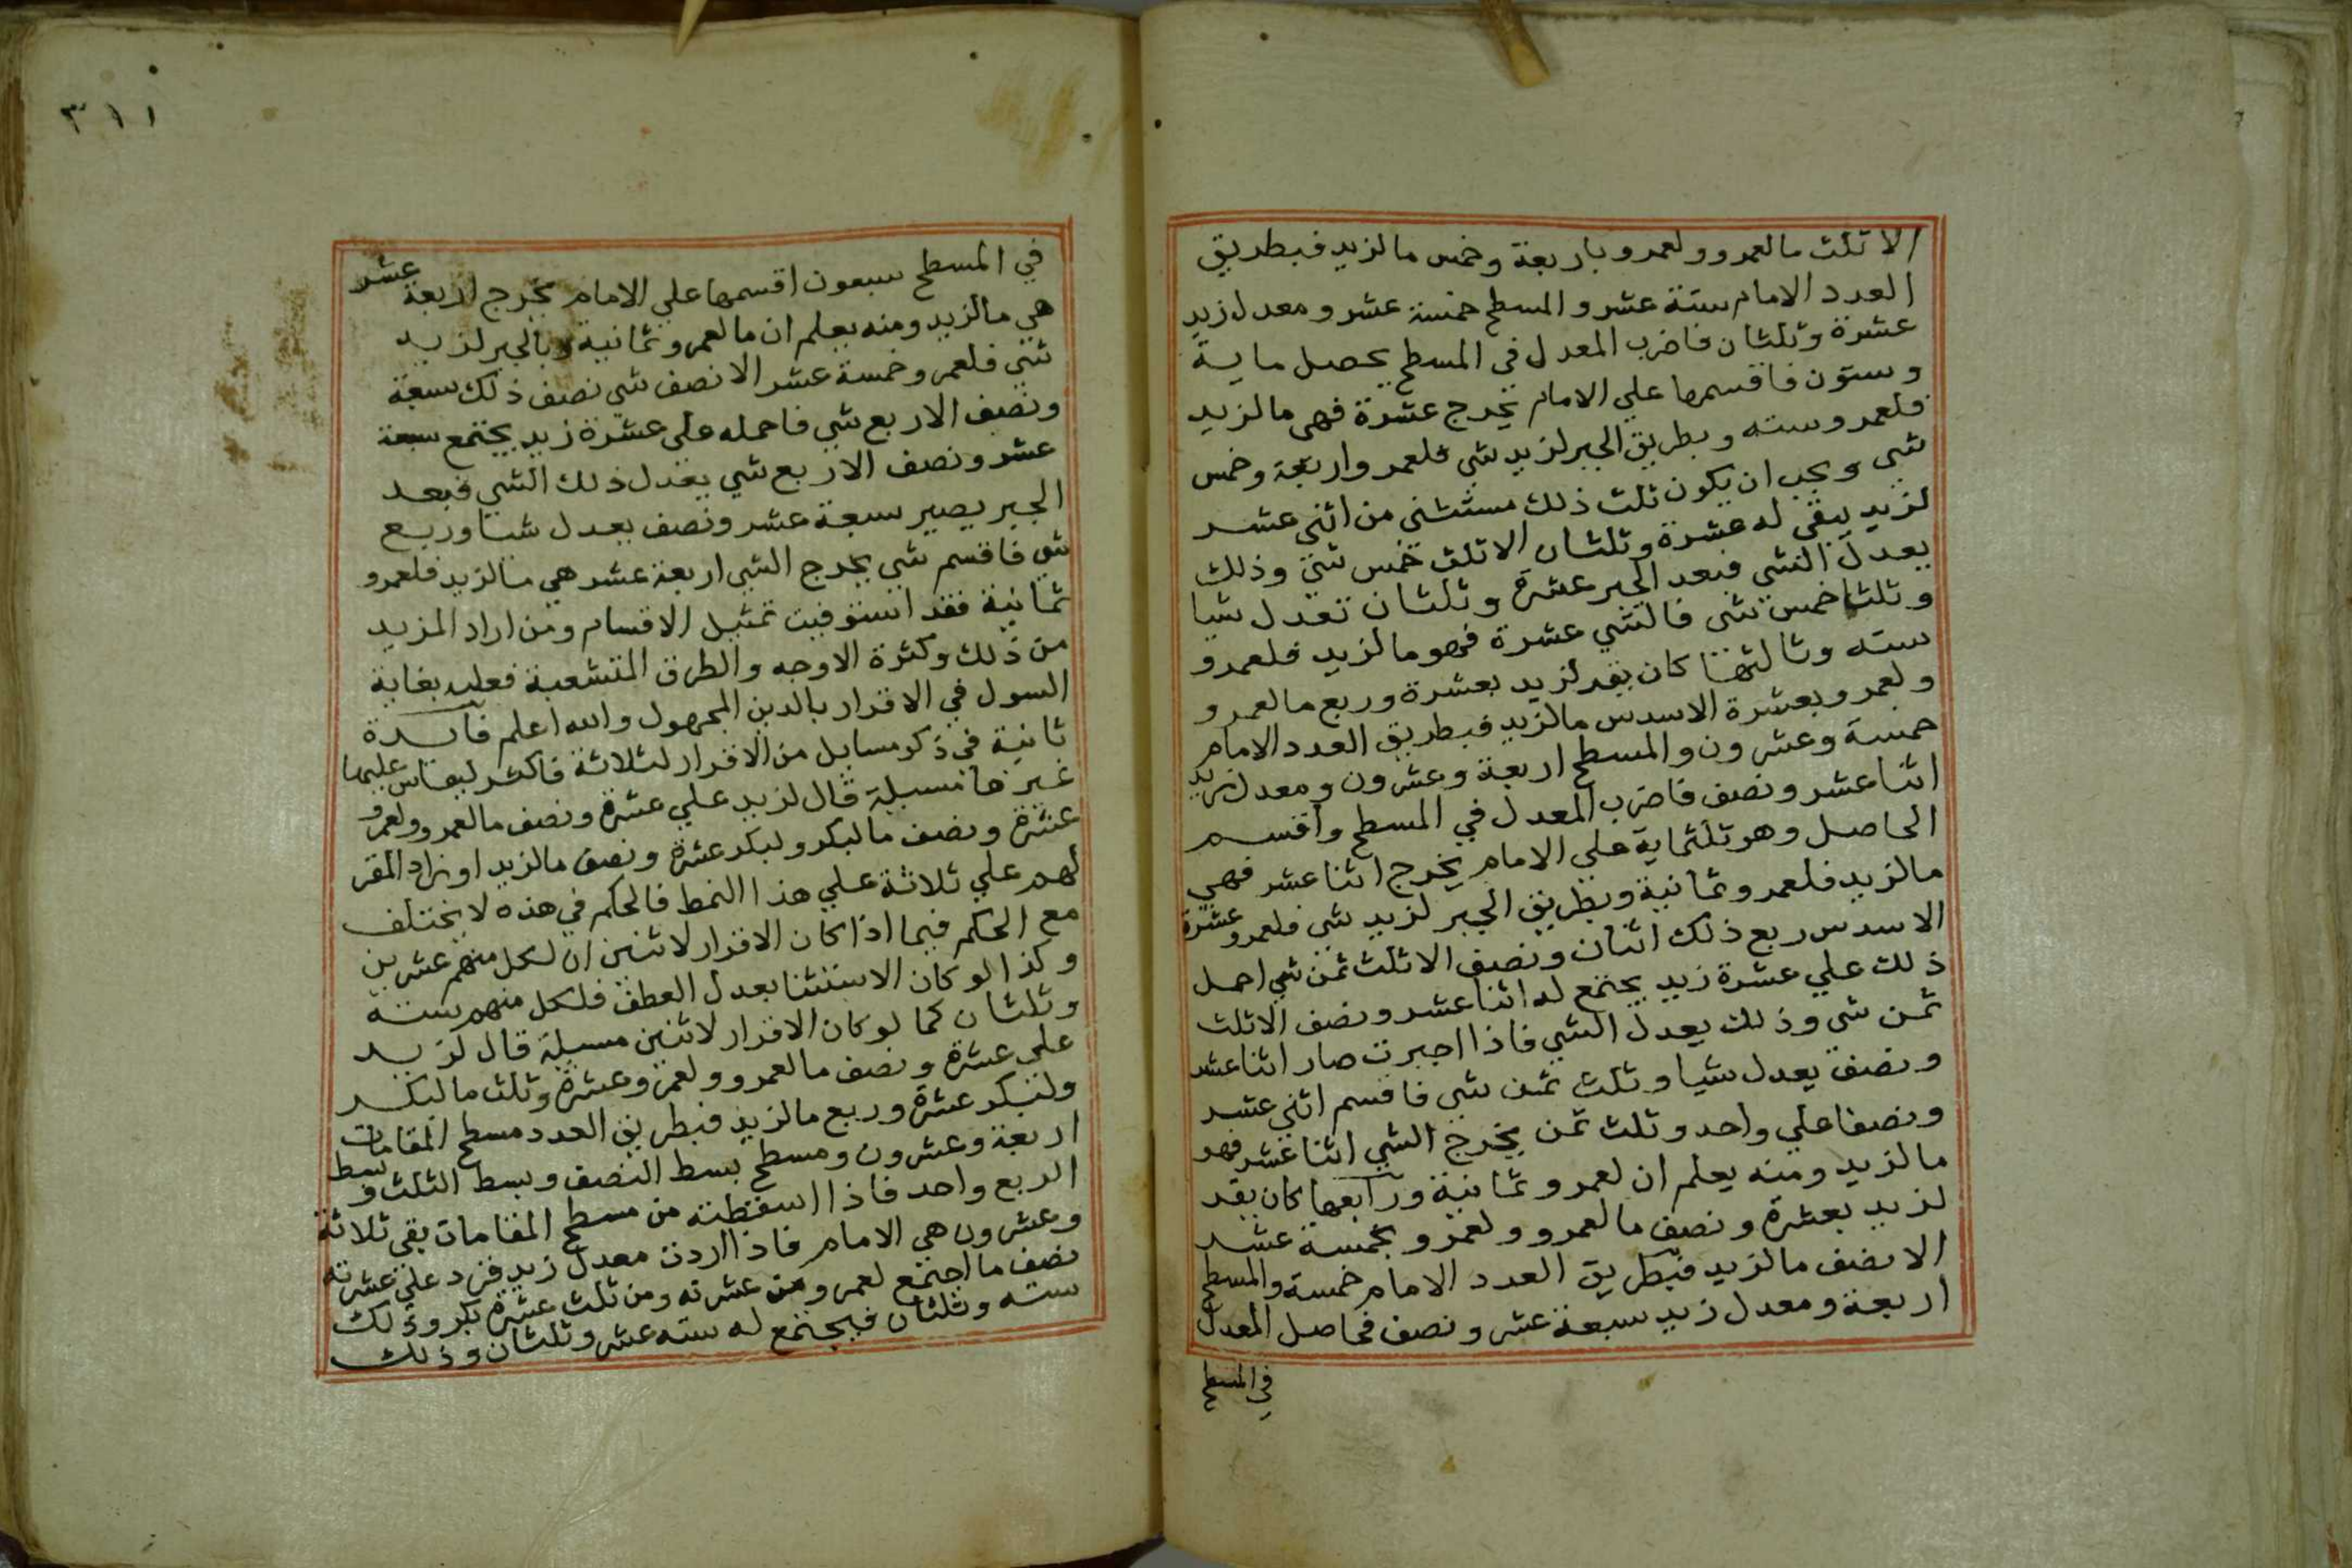 الا ثلث مالعمرو ولعمرو باربعة وخمس مالزيد فبطريق
العدد الامام ستة عشر والمسطح خمسة عشر ومعدل زيد
عشرة وثلثان فاضرب المعدل في المسطح يحصل ماية
وستون فاقسمها علي الامام يخرج عشرة فهي مالزيد
فلعمرو سته وبطريق الجبر لزيد شي فلعمرو اربعة وخمس
شي ويجب ان يكون ثلث ذلك مستثني من اثني عشر
لزيد يبقي له عشرة وثلثان الا ثلث خمس شي وذلك
يعدل الشي فبعد الجبر عشرة وثلثان تعدل شيا
وثلث خمس شي فالشي عشرة فهو مالزيد فلعمرو
سته وثالثها كان يقر لزيد بعشرة وربع مالعمرو و
ولعمرو بعشرة الاسدس مالزيد فبطريق العدد الامام
خمسة وعشرون والمسطح اربعة وعشرون ومعدل زيد
اثنا عشر ونصف فاضرب المعدل في المسطح واقسم
الحاصل وهو ثلثماية علي الامام يخرج اثنا عشر فهي
مالزيد فلعمرو ثمانية وبطريق الجبر لزيد شي فلعمرو عشرة
الاسدس ربع ذلك اثنان ونصف الا ثلث ثمن شي احمل
ذلك علي عشرة زيد يجتمع له اثنا عشر ونصف الا ثلث
ثمن شي وذلك يعدل الشي فاذا اجبرت صار اثنا عشر
ونصف يعدل شيا وثلث ثمن شي فاقسم اثني عشر
ونصفا علي واحد وثلث ثمن يخرج الشي اثنا عشر فهو
مالزيد ومنه يعلم ان لعمرو ثمانية ورابعها كان يقر
لزيد بعشرة ونصف مالعمرو ولعمرو بخمسة عشر
الا نصف مالزيد فبطريق العدد الامام خمسة والمسطح
اربعة ومعدل زيد سبعة عشر ونصف فحاصل المعدل
في المسطح
٣١١
في المسطح سبعون اقسمها علي الامام يخرج اربعة عشر
هي مالزيد ومنه يعلم ان مالعمرو ثمانية وبالجبر لزيد
شي فلعمرو خمسة عشر الا نصف شي نصف ذلك سبعة
ونصف الا ربع شي فاحمله علي عشرة زيد يجتمع سبعة
عشر ونصف الا ربع شي يعدل ذلك الشي فبعد
الجبر يصير سبعة عشر ونصف يعدل شيا وربع
شي فاقسم شي يخرج الشي اربعة عشر هي مالزيد فلعمرو
ثمانية فقد استوفيت تمثيل الاقسام ومن اراد المزيد
من ذلك وكثرة الاوجه والطرق المتشعبة فعليه بغاية
السول في الاقرار بالدين المجهول والله اعلم فايدة
ثانية في ذكر مسايل من الاقرار لثلاثة فاكثر ليقاس عليها
غيرها مسيلة قال لزيد علي عشرة ونصف مالعمرو ولعمرو
عشرة ونصف مالبكر ولبكر عشرة ونصف مالزيد او زاد المقر
لهم علي ثلاثة علي هذا النمط فالحكم في هذه لا يختلف
مع الحكم فيما اذا كان الاقرار لاثنين ان لكل منهم عشرين
وكذا لو كان الاستثنا بعدل العطف فلكل منهم سته
وثلثان كما لو كان الاقرار لاثنين مسيلة قال لزيد
علي عشرة ونصف مالعمرو ولعمرو عشرة وثلث مالبكر
ولبكر عشرة وربع مالزيد فبطريق العدد مسطح المقامات
اربعة وعشرون ومسطح بسط النصف وبسط الثلث وبسط
الربع واحد فاذا اسقطته من مسطح المقامات بقي ثلاثة
وعشرون هي الامام فاذا اردت معدل زيد فزد علي عشرته
نصف ما اجتمع لعمرو من عشرته ومن ثلث عشرة بكر وذلك
سته وثلثان فيجتمع له سته عشر وثلثان وذلك